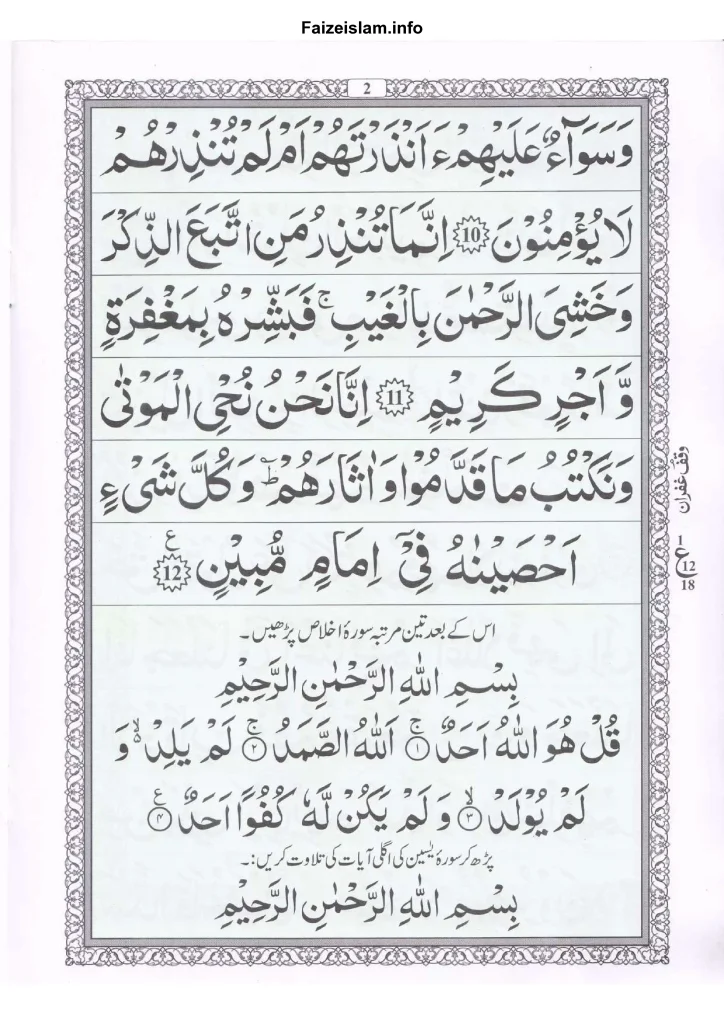 Faizeislam.info
2
وَسَوَآءٌ عَلَيْهِمْ ءَاَنْذَرْتَهُمْ اَمْ لَمْ تُنْذِرْهُمْ
لَا يُؤْمِنُوْنَ 10 اِنَّمَا تُنْذِرُ مَنِ اتَّبَعَ الذِّكْرَ
وَخَشِىَ الرَّحْمٰنَ بِالْغَيْبِ ۚ فَبَشِّرْهُ بِمَغْفِرَةٍ
وَّ اَجْرٍ كَرِيْمٍ 11 اِنَّا نَحْنُ نُحْىِ الْمَوْتٰى
وَنَكْتُبُ مَا قَدَّمُوْا وَاٰثَارَهُمْ ؕ وَكُلَّ شَىْءٍ
وقف غفران
اَحْصَيْنٰهُ فِىْٓ اِمَامٍ مُّبِيْنٍ 12 ع
1
ع 12
18
اس کے بعد تین مرتبہ سورۂ اخلاص پڑھیں۔
بِسْمِ اللهِ الرَّحْمٰنِ الرَّحِيْمِ
قُلْ هُوَ اللهُ اَحَدٌ ۚ ۱ اَللهُ الصَّمَدُ ۚ ۲ لَمْ يَلِدْ ۙ۬ وَ
لَمْ يُوْلَدْ ۙ ۳ وَ لَمْ يَكُنْ لَّهٗ كُفُوًا اَحَدٌ ۴ ع
پڑھ کر سورۂ یٰسین کی اگلی آیات کی تلاوت کریں:۔
بِسْمِ اللهِ الرَّحْمٰنِ الرَّحِيْمِ